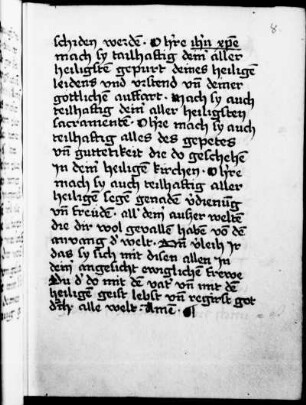 8
schiden werdē. O hr̄e ih̄u xp̄e
mach sy tailhaftig deinˀ aller
heiligstē gepurt deines heiligē
leidens vnd vrstend vn̄ deiner
gotlichen auffart. Mach sy auch
teilhaftig deinˀ aller heiligsten
sacramente. O hr̄e mach sy auch
teilhaftig alles des gepetes
vn̄ guttetikeit die do geschehē
in deinˀ heiligē kirchen. O hr̄e
mach sy auch teilhaftig aller
heiligē segē genadē vˀdienūg
vn̄ freudē. all deinˀ auſʒerwelten
die dir wol gevallē habē vō dē
anvang dˀ welt. Vn̄ vˀleih ir
das sy sich mit disen allen in
deinˀ angesicht ewiglichē frewe
Du dˀ do mit dē vatˀ vn̄ mit dē
heiligē geist lebst vn̄ regirst got
alle welt. Amē.